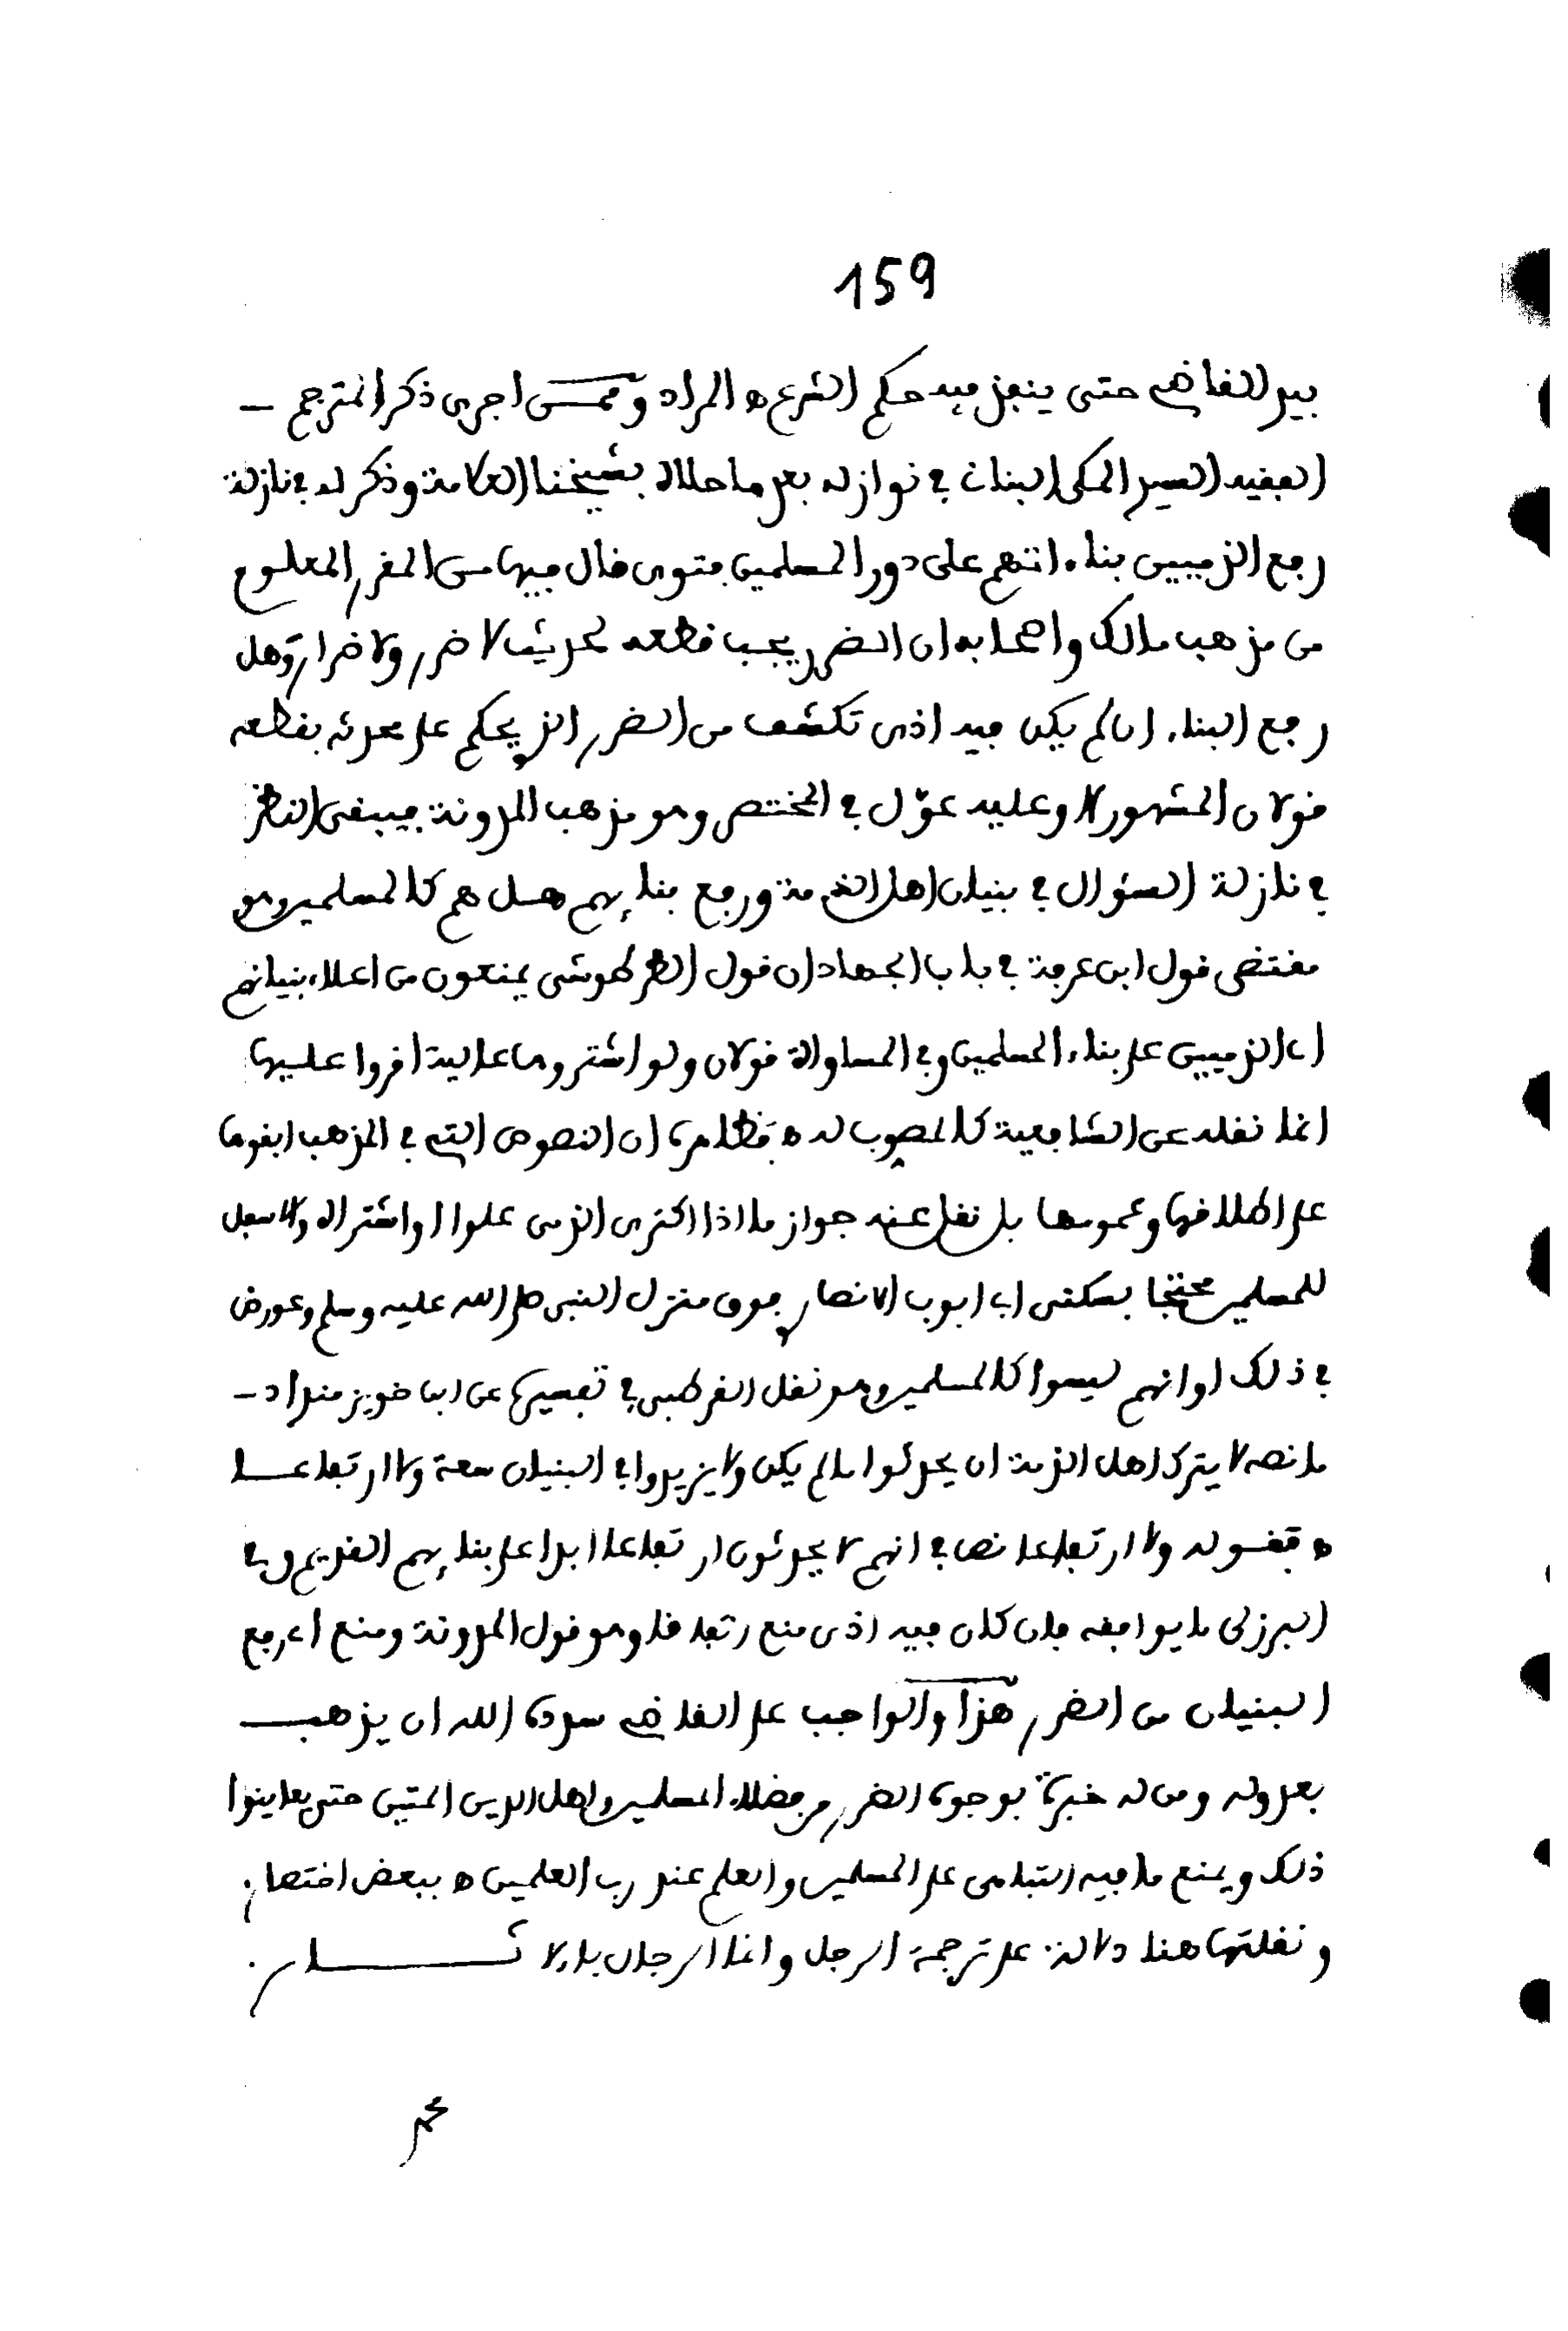 159
بيد القاضي حتى ينفذ فيه حكم الشرع ه المراد وممن اجرى ذكر المترجم –
الفقيه السيد المكي البناني في نوازله بعد ما حلاه بشيخنا العلامة وذكر له في نازلة
رفع الذميين بناء انتهم على دور المسلمين فتوى قال فيها من المقرر المعلوم
من مذهب مالك واصحابه ان الضرر يجب قطعه لحديث لا ضرر ولا ضرار وهل
رفع البناء ان لم يكن فيه اذى تكشف من الضرر الذي يحكم على محدثه بقطعه
قولان المشهور لا وعليه عوّل في المختصر وهو مذهب المدونة فيبقى النظر
في نازلة السؤال في بنيان اهل الذمة ورفع بنايهم هل هم كالمسلمين وهو
مقتضى قول ابن عرفة في باب الجهاد ان قول الطرطوشي يمنعون من اعلاء بنيانهم
اي الذميين على بناء المسلمين وفي المساواة قولان ولو اشتروها عالية اقروا عليها
انما نقله عن الشافعية كالمصوب له ه فظاهره ان النصوص التي في المذهب ابقوها
على اطلاقها وعمومها بل نقل عنه جواز ما اذا اكترى الذمي علوا او اشتراه والاسفل
للمسلمين محتجا بسكنى ابي ايوب الانصاري فوق منزل النبي صلى الله عليه وسلم وعورض
في ذلك او انهم ليسوا كالمسلمين وهو نقل القرطبي في تفسيره عن ابن خويز منداد –
ما نصه لا يترك اهل الذمة ان يحدثوا ما لم يكن ولا يزيدوا في البنيان سعة ولا ارتفاعا
ه فقوله ولا ارتفاعا نص في انهم لا يحدثون ارتفاعا ابدا على بنايهم القديم وفي
البرزلي ما يوافقه فان كان فيه اذى منع اتفاقا وهو قول المدونة ومنع اي رفع
البنيان من الضرر هذا والواجب على القاضي سدده الله ان يذهب
بعدوله ومن له خبرة بوجوه الضرر من فضلاء المسلمين واهل الدين المتين حتى يعاينوا
ذلك ويمنع ما فيه التباهي على المسلمين والعلم عند رب العلمين ه ببعض اختصار
ونقلتها هنا دلالة على ترجمة الرجل وانما الرجال بالاثـــــار
محمد